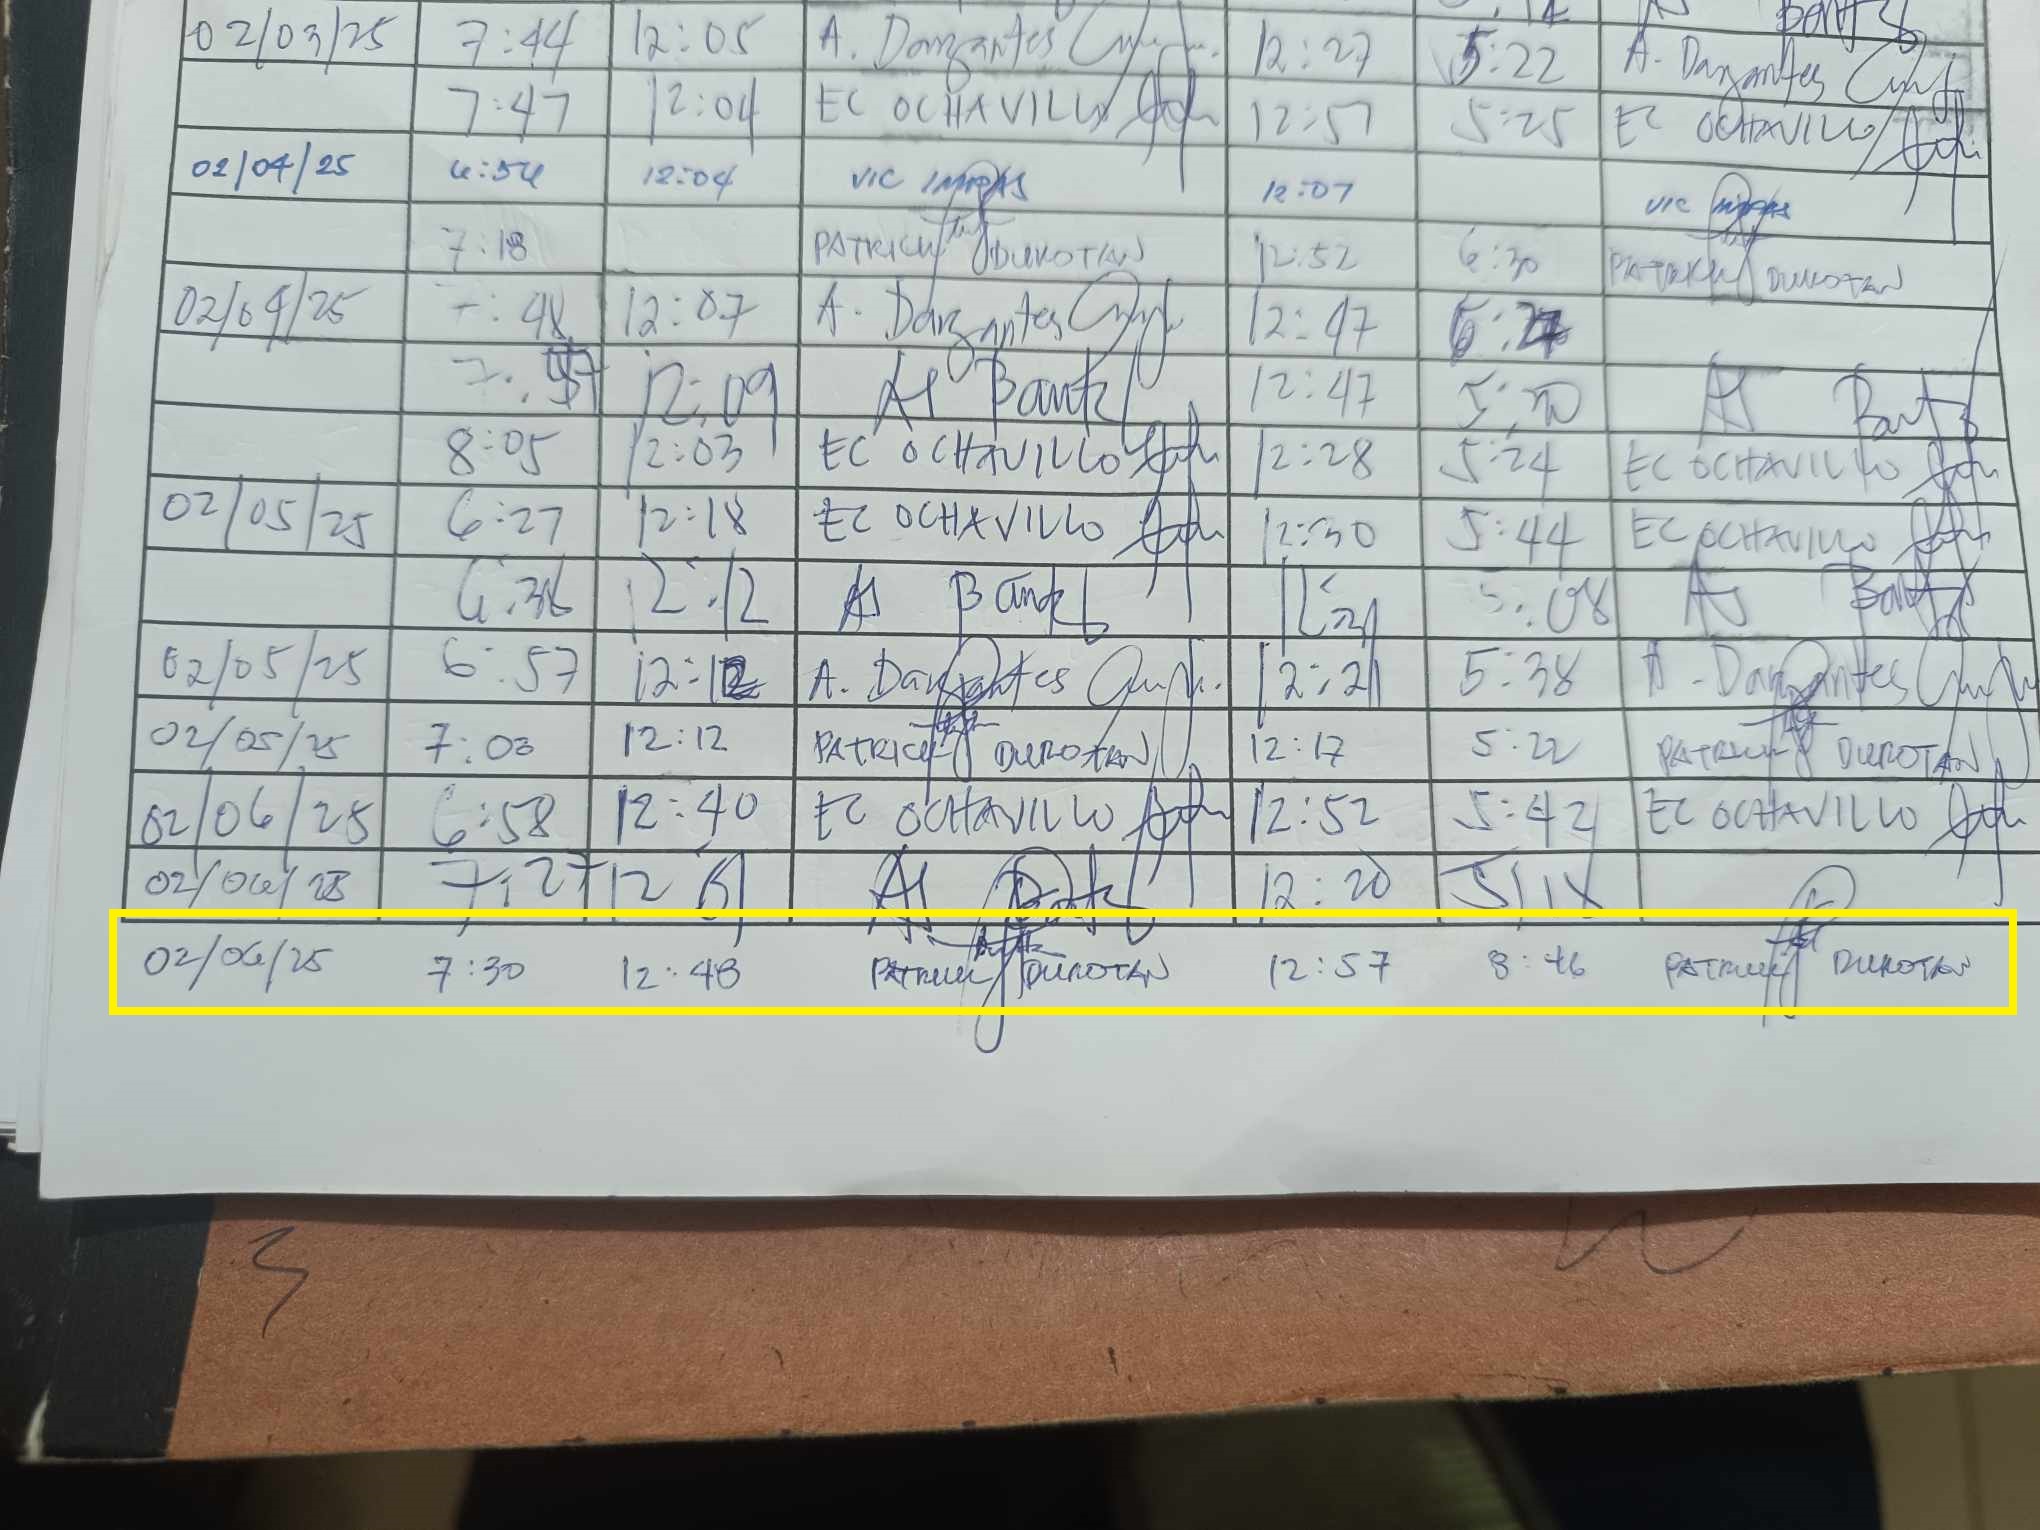 02/03/25 7:44 12:05 A. Danzantes 12:27 5:22 A. Danzantes
7:47 12:04 EC OCHAVILLO 12:57 5:25 EC OCHAVILLO
02/04/25 6:54 12:04 VIC 12:07 VIC
7:18 PATRICK DUROTAN 12:52 6:30 PATRICK DUROTAN
02/04/25 7:48 12:07 A. Danzantes 12:47
12:09 Al 12:47 5:20 Al
8:05 12:03 EC OCHAVILLO 12:28 5:24 EC OCHAVILLO
02/05/25 6:27 12:18 EC OCHAVILLO 12:30 5:44 EC OCHAVILLO
6:36 12:12 Al 12:21 5:08 Al
02/05/25 6:57 12:12 A. Danzantes 12:21 5:38 A. Danzantes
02/05/25 7:03 12:12 PATRICK DUROTAN 12:17 5:22 PATRICK DUROTAN
02/06/25 6:58 12:40 EC OCHAVILLO 12:52 5:42 EC OCHAVILLO
02/06/25 7:27 Al 12:20
02/06/25 7:30 12:48 PATRICK DUROTAN 12:57 8:46 PATRICK DUROTAN